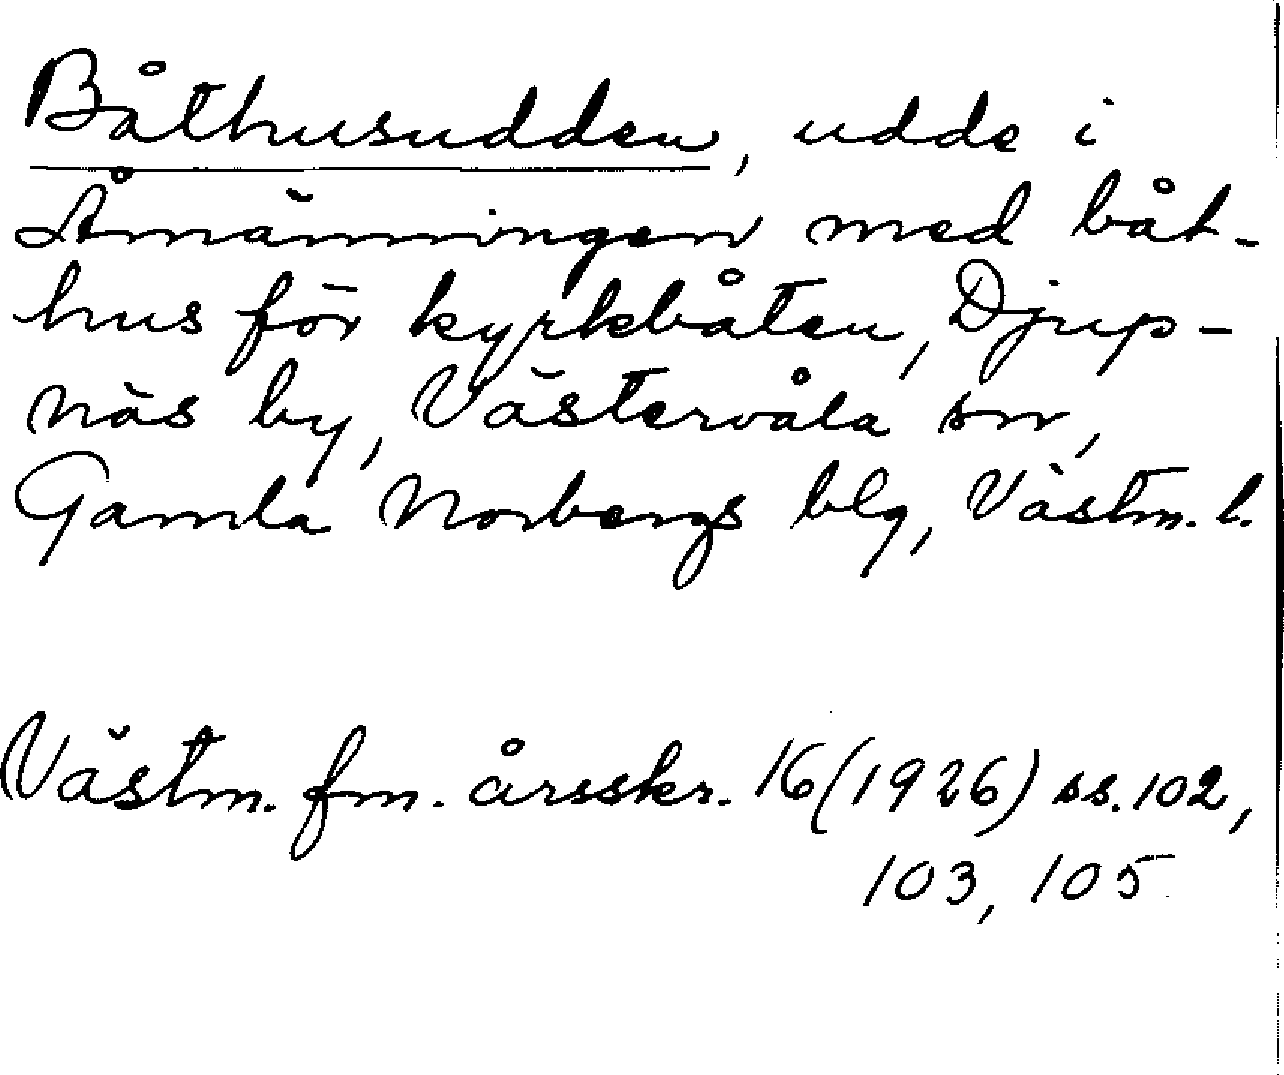 Båthusudden, udde i
Åmänningen med båt-
hus för kyrkbåten, Djup-
näs by, Västervåla sn,
Gamla Norbergs blg, Västm. l.
Västm. fm. årsskr. 16 (1926) ss. 102,
103, 105